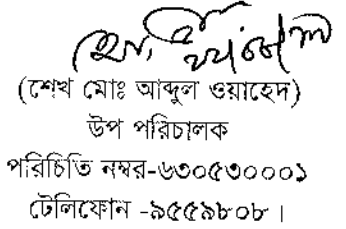 (শেখ মোঃ আব্দুল ওয়াহেদ)
উপ পরিচালক
পরিচিতি নম্বর-৬৩০৫৩০০০১
টেলিফোন -৯৫৫৯৮০৮ ।